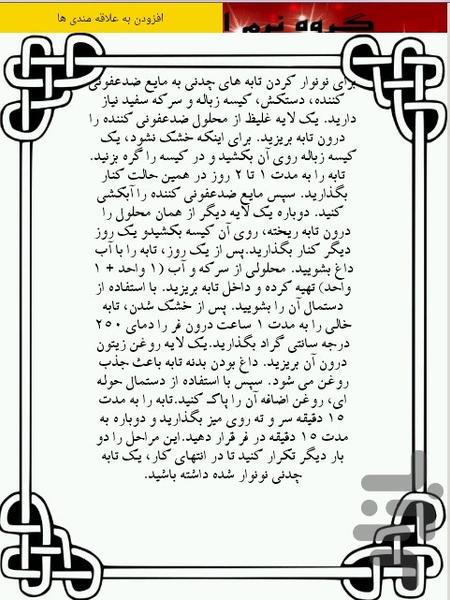 افزودن به علاقه مندی ها
گروه نرم ا
برای نونوار کردن تابه های چدنی به مایع ضدعفونی
کننده، دستکش، کیسه زباله و سرکه سفید نیاز
دارید. یک لایه غلیظ از محلول ضدعفونی کننده را
درون تابه بریزید. برای اینکه خشک نشود، یک
کیسه زباله روی آن بکشید و در کیسه را گره بزنید.
تابه را به مدت ۱ تا ۲ روز در همین حالت کنار
بگذارید. سپس مایع ضدعفونی کننده را آبکشی
کنید. دوباره یک لایه دیگر از همان محلول را
درون تابه ریخته، روی آن کیسه بکشیدو یک روز
دیگر کنار بگذارید.پس از یک روز، تابه را با آب
داغ بشویید. محلولی از سرکه و آب (۱ واحد + ۱
واحد) تهیه کرده و داخل تابه بریزید. با استفاده از
دستمال آن را بشویید. پس از خشک شدن، تابه
خالی را به مدت ۱ ساعت درون فر را دمای ۲۵۰
درجه سانتی گراد بگذارید.یک لایه روغن زیتون
درون آن بریزید. داغ بودن بدنه تابه باعث جذب
روغن می شود. سپس با استفاده از دستمال حوله
ای، روغن اضافه آن را پاک کنید.تابه را به مدت
۱۵ دقیقه سر و ته روی میز بگذارید و دوباره به
مدت ۱۵ دقیقه در فر قرار دهید.این مراحل را دو
بار دیگر تکرار کنید تا در انتهای کار، یک تابه
چدنی نونوار شده داشته باشید.